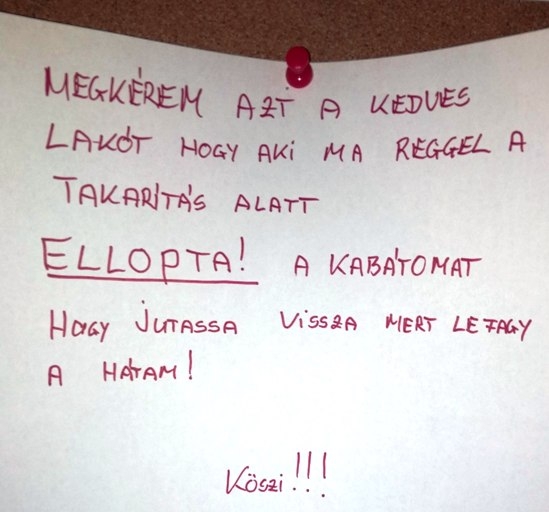 MEGKÉREM AZT A KEDVES
LAKÓT HOGY AKI MA REGGEL A
TAKARÍTÁS ALATT
ELLOPTA! A KABÁTOMAT
HOGY JUTASSA VISSZA MERT LEFAGY
A HÁTAM!
Köszi!!!